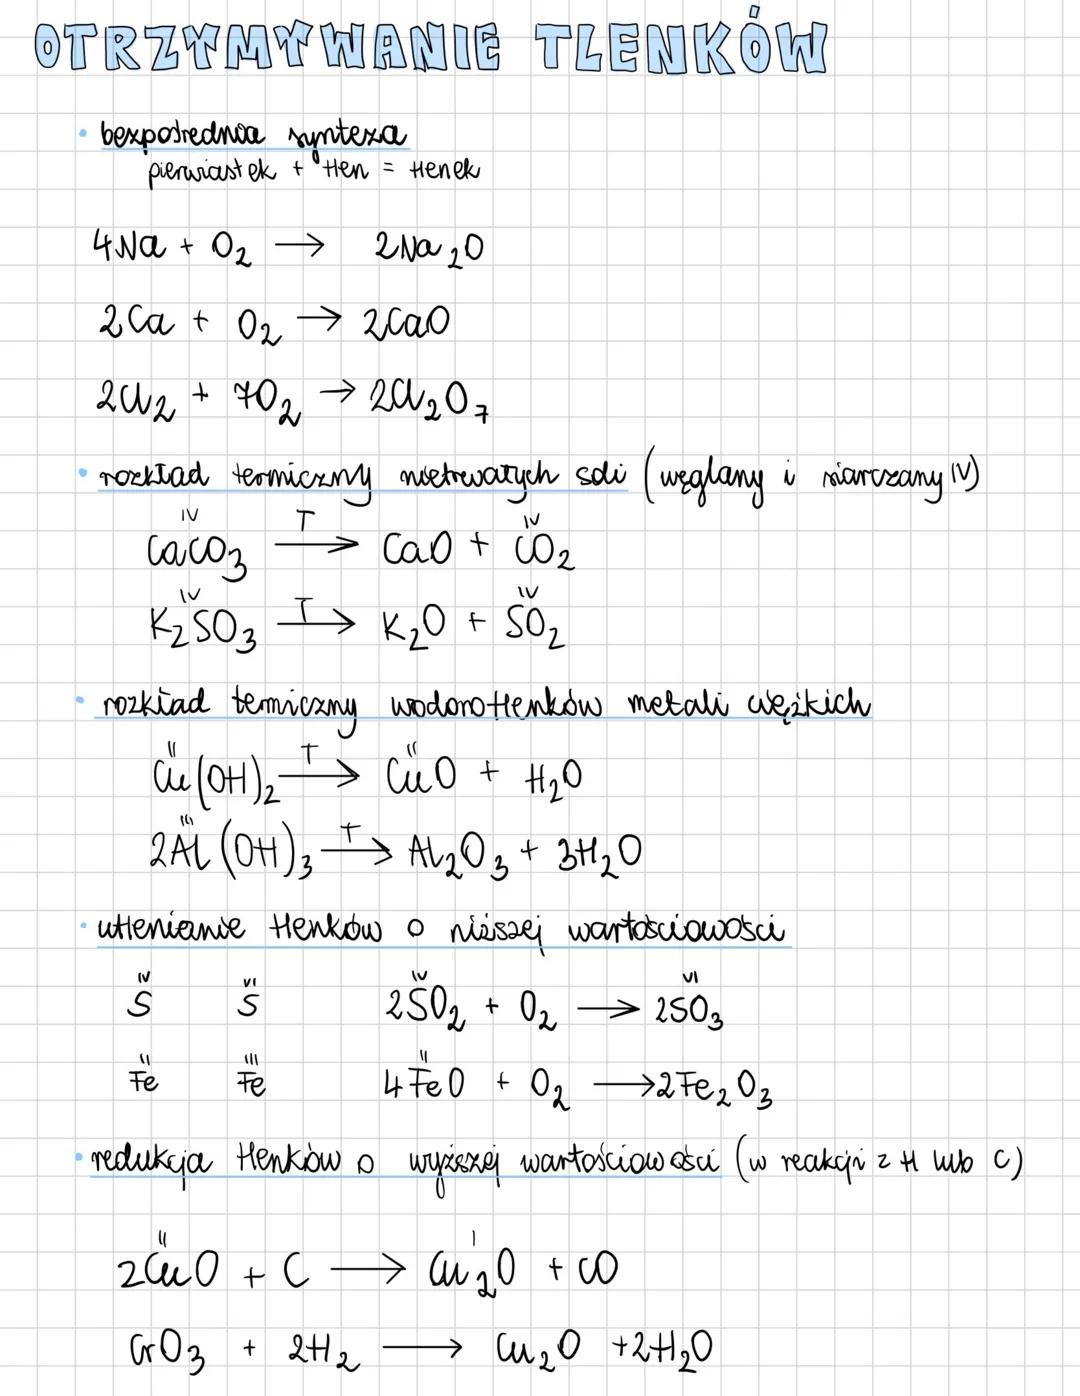 OTRZYMYWANIE TLENKÓW
• bezpośrednia synteza
pierwiastek + tlen = tlenek
4Na + O₂ → 2Na₂O
2Ca + O₂ → 2CaO
2Cl₂ + 7O₂ → 2Cl₂O₇
• rozkład termiczny nietrwałych soli (węglany i siarczany IV)
IV T IV
CaCO₃ → CaO + CO₂
IV T IV
K₂SO₃ → K₂O + SO₂
• rozkład termiczny wodorotlenków metali ciężkich
II T II
Cu(OH)₂ → CuO + H₂O
III T
2Al(OH)₃ → Al₂O₃ + 3H₂O
• utlenianie tlenków o niższej wartościowości
IV VI IV VI
S S 2SO₂ + O₂ → 2SO₃
II III II
Fe Fe 4FeO + O₂ → 2Fe₂O₃
• redukcja tlenków o wyższej wartościowości (w reakcji z H lub C)
II I
2CuO + C → Cu₂O + CO
CrO₃ + 2H₂ → Cu₂O + 2H₂O